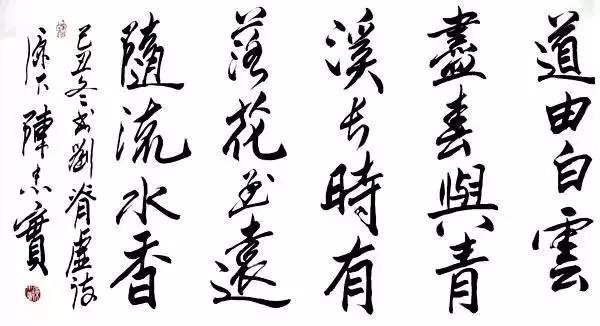 道由白雲
盡春與青
溪长時有
落花至遠
隨流水香
己丑冬书劉脊虛诗
原下陳忠實